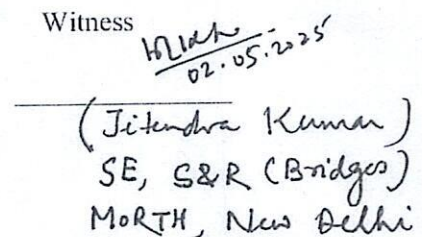 Witness
02.05.2025
(Jitendra Kumar)
SE, S&R (Bridges)
MoRTH, New Delhi